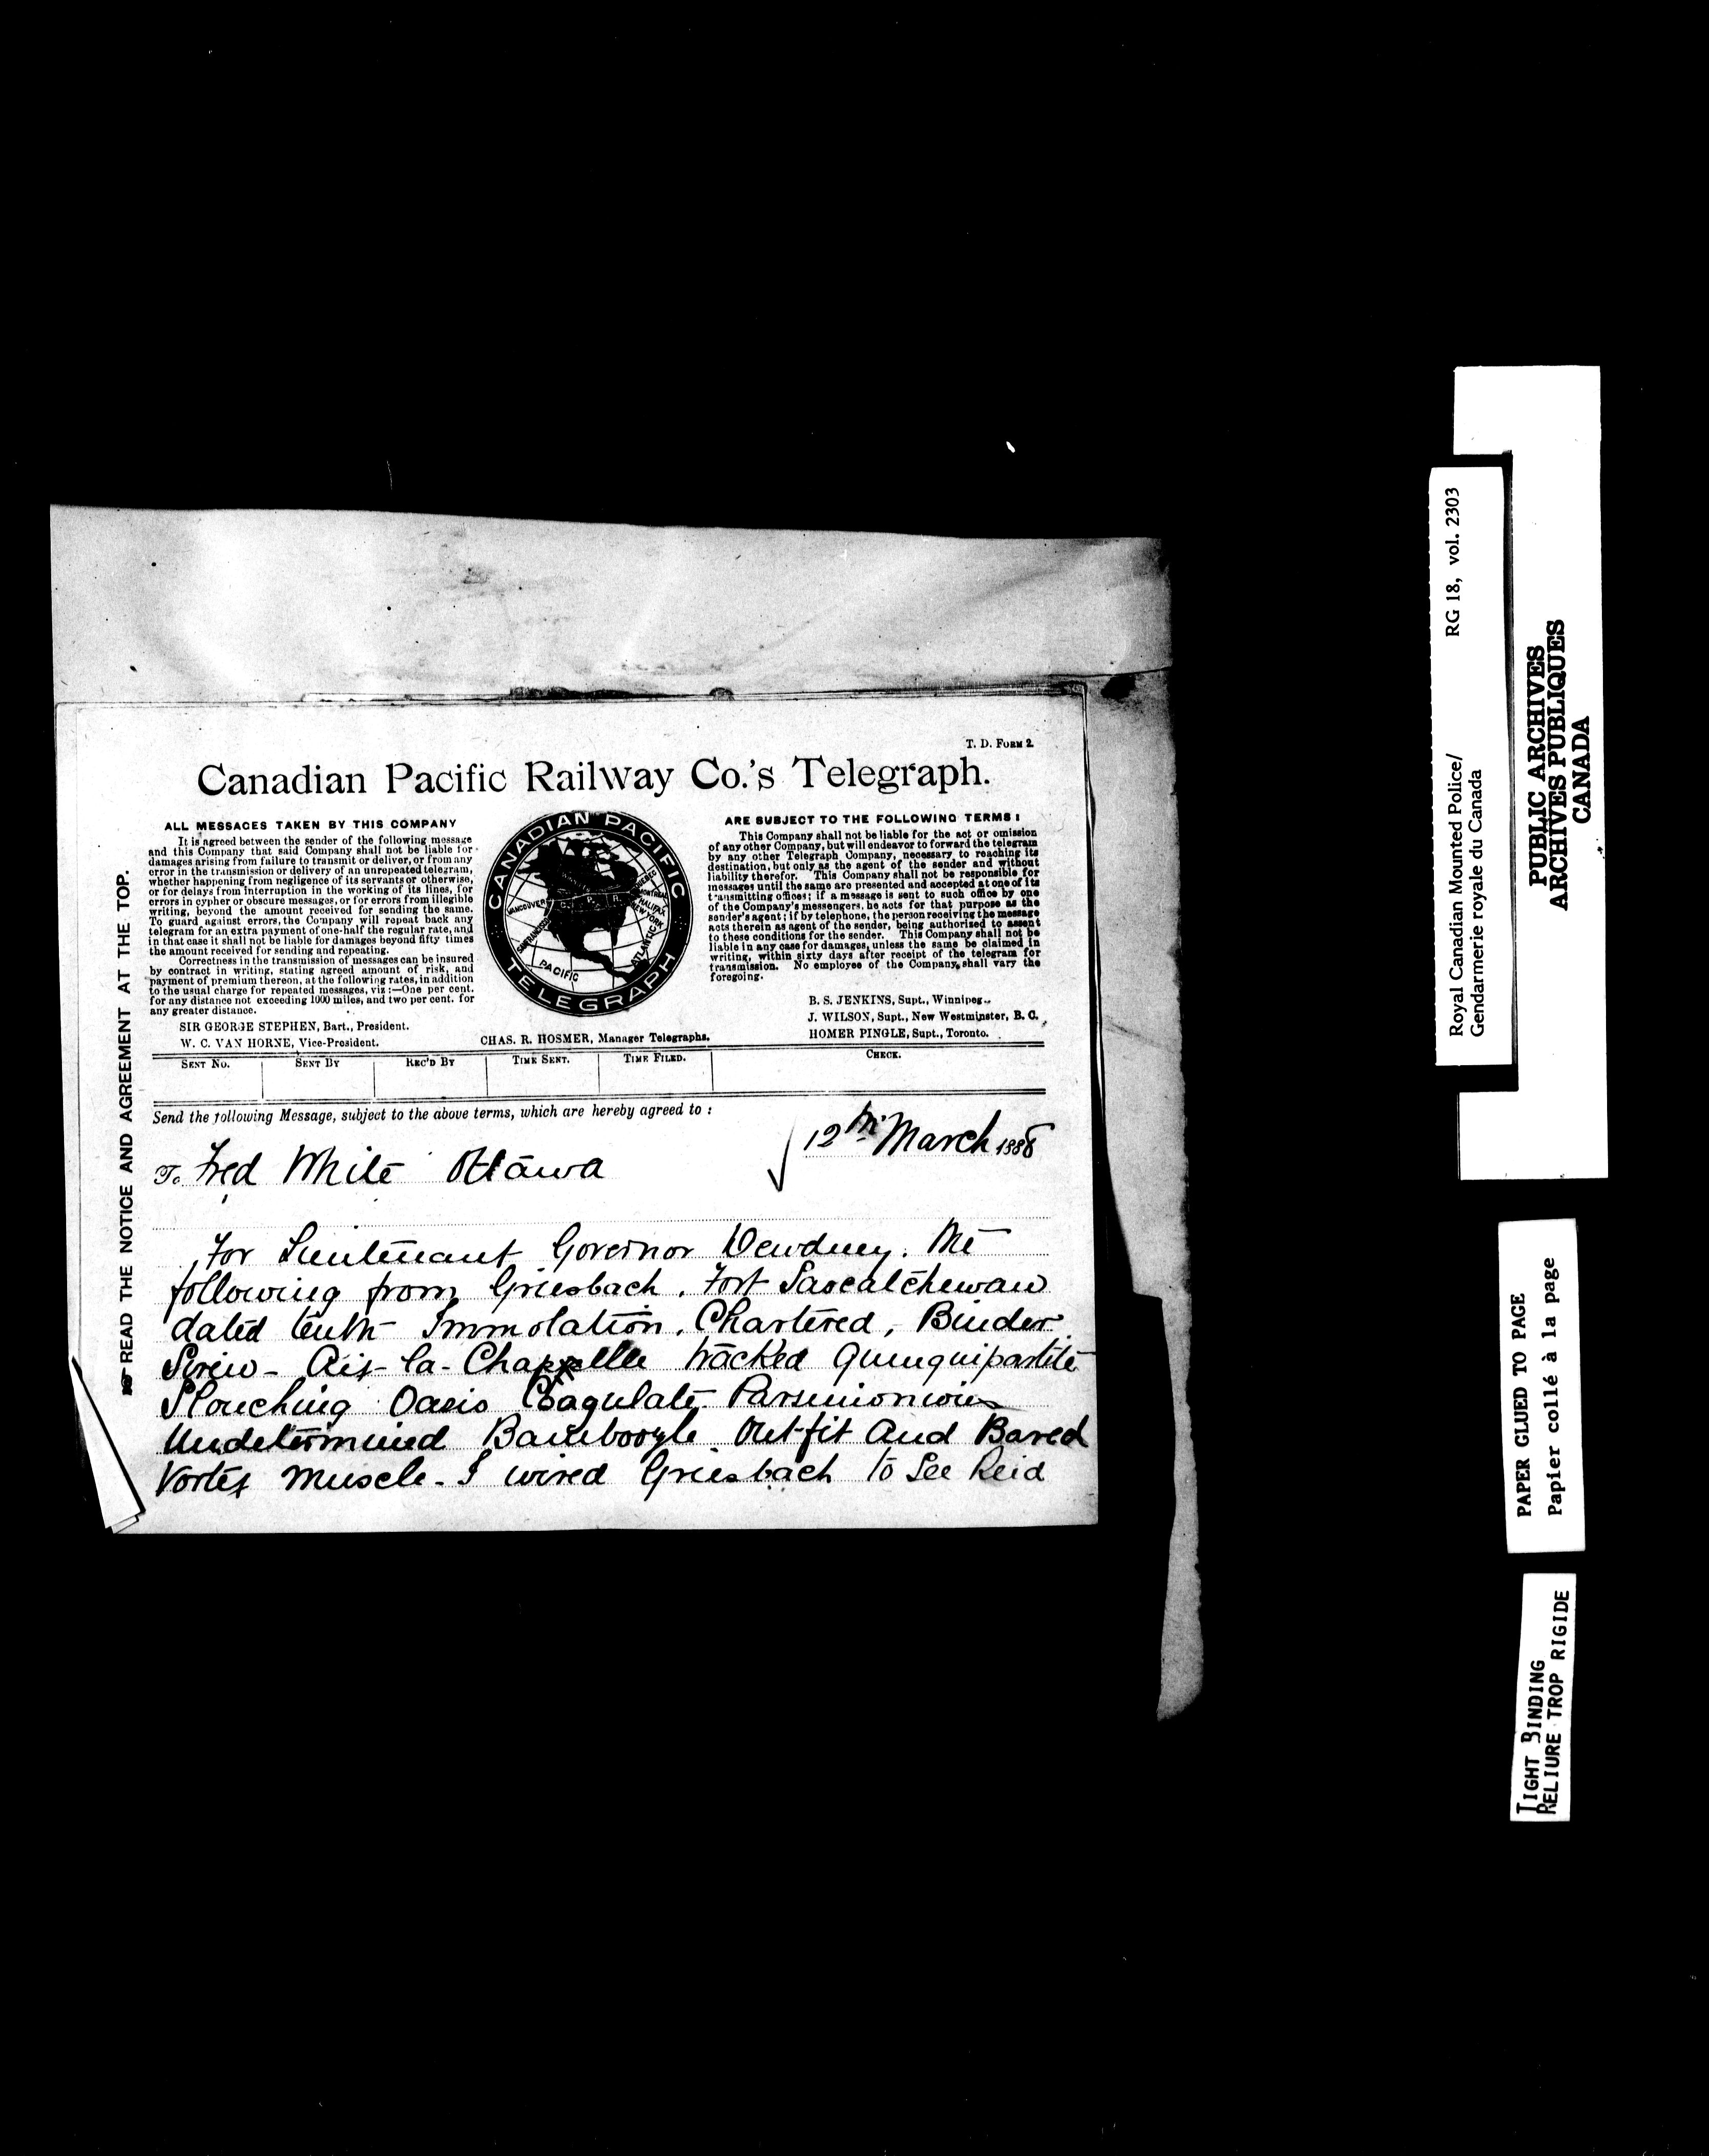 T. D. FORM 2
Canadian Pacific Railway Co.'s Telegraph.
ALL MESSAGES TAKEN BY THIS COMPANY
It is agreed between the sender of the following message
and this Company that said Company shall not be liable for
damages arising from failure to transmit or deliver, or from any
error in the transmission or delivery of an unrepeated telegram,
whether happening from negligence of its servants or otherwise,
or for delays from interruption in the working of its lines, for
errors in cypher or obscure messages, or for errors from illegible
writing, beyond the amount received for sending the same.
To guard against errors, the Company will repeat back any
telegram for an extra payment of one-half the regular rate, and
in that case it shall not be liable for damages beyond fifty times
the amount received for sending and repeating.
Correctness in the transmission of messages can be insured
by contract in writing, stating agreed amount of risk, and
payment of premium thereon, at the following rates, in addition
to the usual charge for repeated messages, viz:—One per cent.
for any distance not exceeding 1000 miles, and two per cent. for
any greater distance.
SIR GEORGE STEPHEN, Bart., President.
W. C. VAN HORNE, Vice-President.
CANADIAN PACIFIC
TELEGRAPH
VANCOUVER
C. P. R.
QUEBEC
MONTREAL
HALIFAX
NEW YORK
SAN FRANCISCO
PACIFIC
ATLANTIC
CHAS. R. HOSMER, Manager Telegraphs.
ARE SUBJECT TO THE FOLLOWING TERMS:
This Company shall not be liable for the act or omission
of any other Company, but will endeavor to forward the telegram
by any other Telegraph Company, necessary to reaching its
destination, but only as the agent of the sender and without
liability therefor. This Company shall not be responsible for
messages until the same are presented and accepted at one of its
transmitting offices; if a message is sent to such office by one
of the Company's messengers, he acts for that purpose as the
sender's agent; if by telephone, the person receiving the message
acts therein as agent of the sender, being authorised to assent
to these conditions for the sender. This Company shall not be
liable in any case for damages, unless the same be claimed in
writing, within sixty days after receipt of the telegram for
transmission. No employee of the Company shall vary the
foregoing.
B. S. JENKINS, Supt., Winnipeg.
J. WILSON, Supt., New Westminster, B. C.
HOMER PINGLE, Supt., Toronto.
SENT NO. SENT BY REC'D BY TIME SENT. TIME FILED. CHECK.
Send the following Message, subject to the above terms, which are hereby agreed to:
12th March 1888
To Fred White Ottawa
For Lieutenant Governor Dewdney. The
following from Griesbach, Fort Sascatchewan
dated tenth Immolation, Chartered, Binder
Screw - Aix-la-Chappelle tracked Quinquipartite
Slouching Oasis Coagulate Parsimonious
Undetermined Bamboozle Out-fit and Bared
Vortex Muscle - I wired Griesbach to See Reid
READ THE NOTICE AND AGREEMENT AT THE TOP.
Royal Canadian Mounted Police/ RG 18, vol. 2303
Gendarmerie royale du Canada
PUBLIC ARCHIVES
ARCHIVES PUBLIQUES
CANADA
PAPER GLUED TO PAGE
Papier collé à la page
TIGHT BINDING
RELIURE TROP RIGIDE